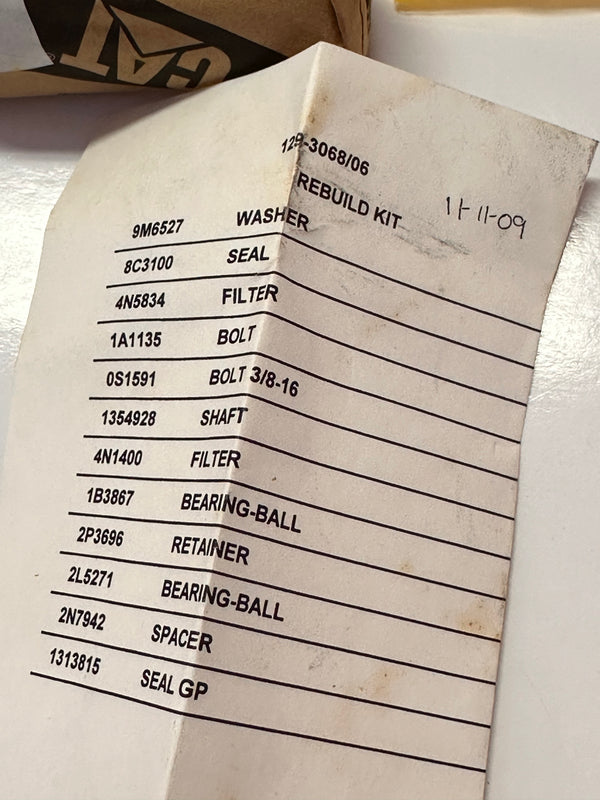 CAT
129-3068/06
REBUILD KIT
11-11-09
9M6527 WASHER
8C3100 SEAL
4N5834 FILTER
1A1135 BOLT
0S1591 BOLT 3/8-16
1354928 SHAFT
4N1400 FILTER
1B3867 BEARING-BALL
2P3696 RETAINER
2L5271 BEARING-BALL
2N7942 SPACER
1313815 SEAL GP